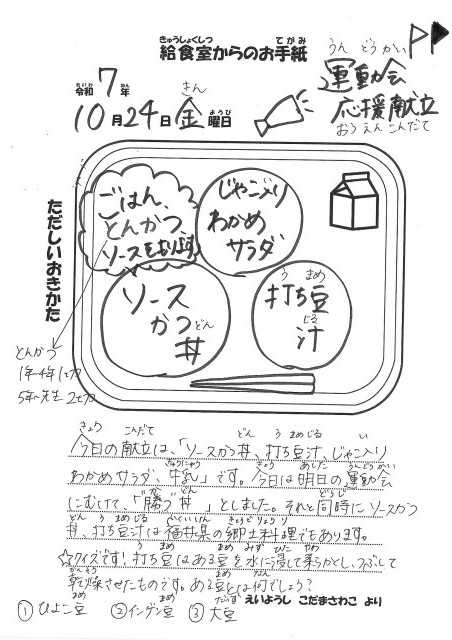 給食室からのお手紙
きゅうしょくしつ てがみ
令和7年
れいわ ねん
10月24日金曜日
きん ようび
うんどうかい
運動会
応援献立
おうえんこんだて
ただしいおきかた
ごはん、
とんかつ
ソースをよそります
じゃこ入り
わかめ
サラダ
ソース
かつ
丼
どん
う まめ
打ち豆
じる
汁
とんかつ
1年~4年 1切
5年~先生 2切
きょう こんだて どん う まめじる い
今日の献立は、「ソースかつ丼、打ち豆汁、じゃこ入り
ぎゅうにゅう きょう あした うんどうかい
わかめサラダ、牛乳」です。今日は明日の運動会
か どん どうじ
にむけて、「勝つ丼」としました。それと同時にソースかつ
どん う まめじる ふくいけん きょうどりょうり
丼、打ち豆汁は福井県の郷土料理でもあります。
う まめ まめ みず ひた やわ
☆クイズです!打ち豆はある豆を水に浸して柔らかくし、つぶして
かんそう まめ なん
乾燥させたものです。ある豆とは何でしょう?
まめ まめ だいず
①ひよこ豆 ②インゲン豆 ③大豆
えいようし こだまさわこ より